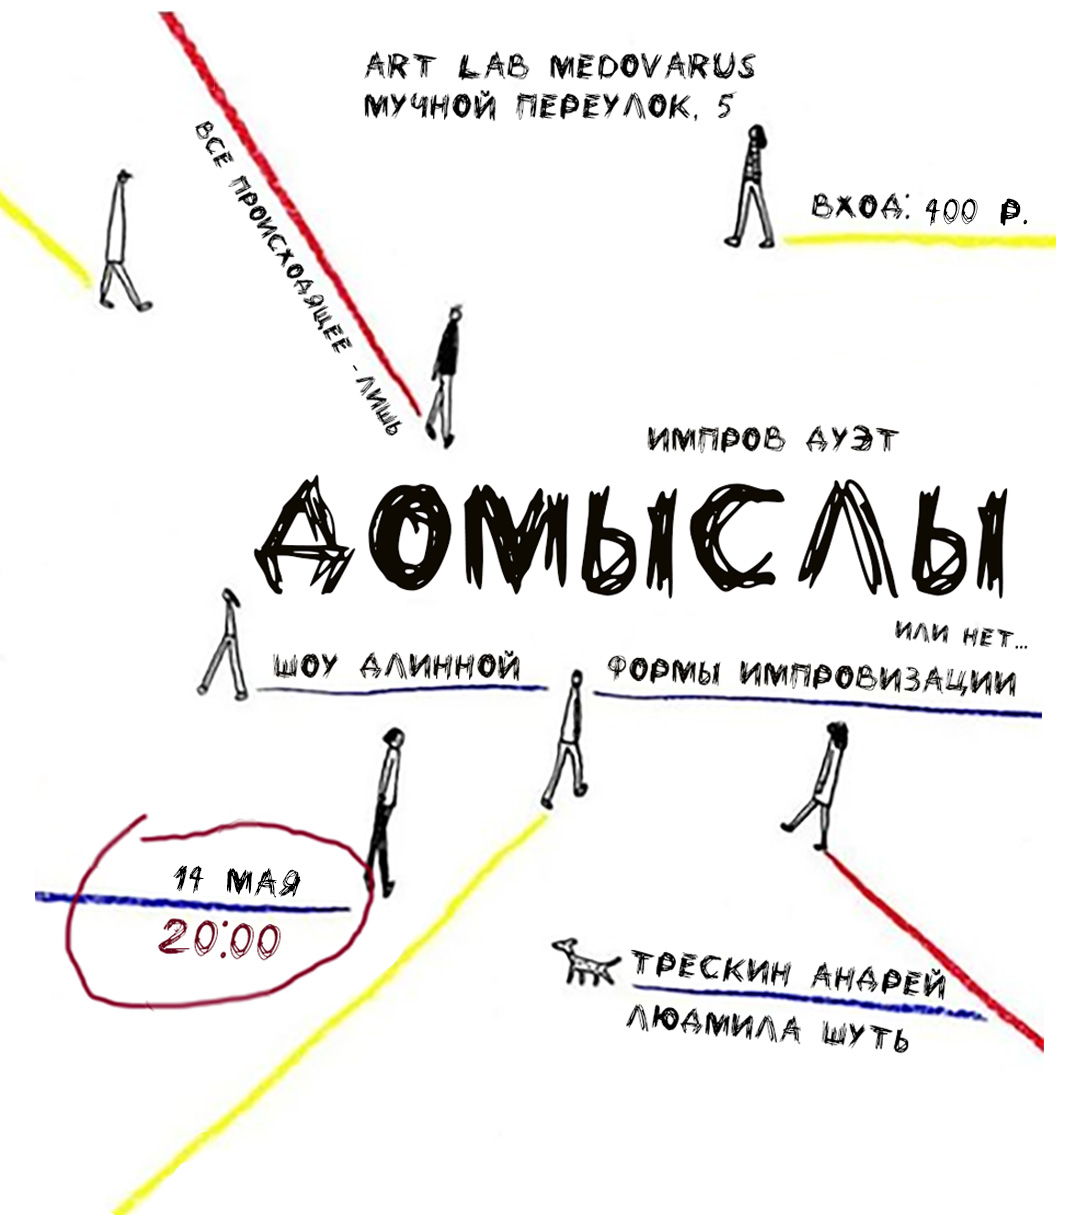 ART LAB MEDOVARUS
МУЧНОЙ ПЕРЕУЛОК, 5
ВХОД: 400 Р.
ВСЕ ПРОИСХОДЯЩЕЕ - ЛИШЬ
ИМПРОВ ДУЭТ
ДОМЫСЛЫ
ИЛИ НЕТ...
ШОУ ДЛИННОЙ ФОРМЫ ИМПРОВИЗАЦИИ
14 МАЯ
20:00
ТРЕСКИН АНДРЕЙ
ЛЮДМИЛА ШУТЬ